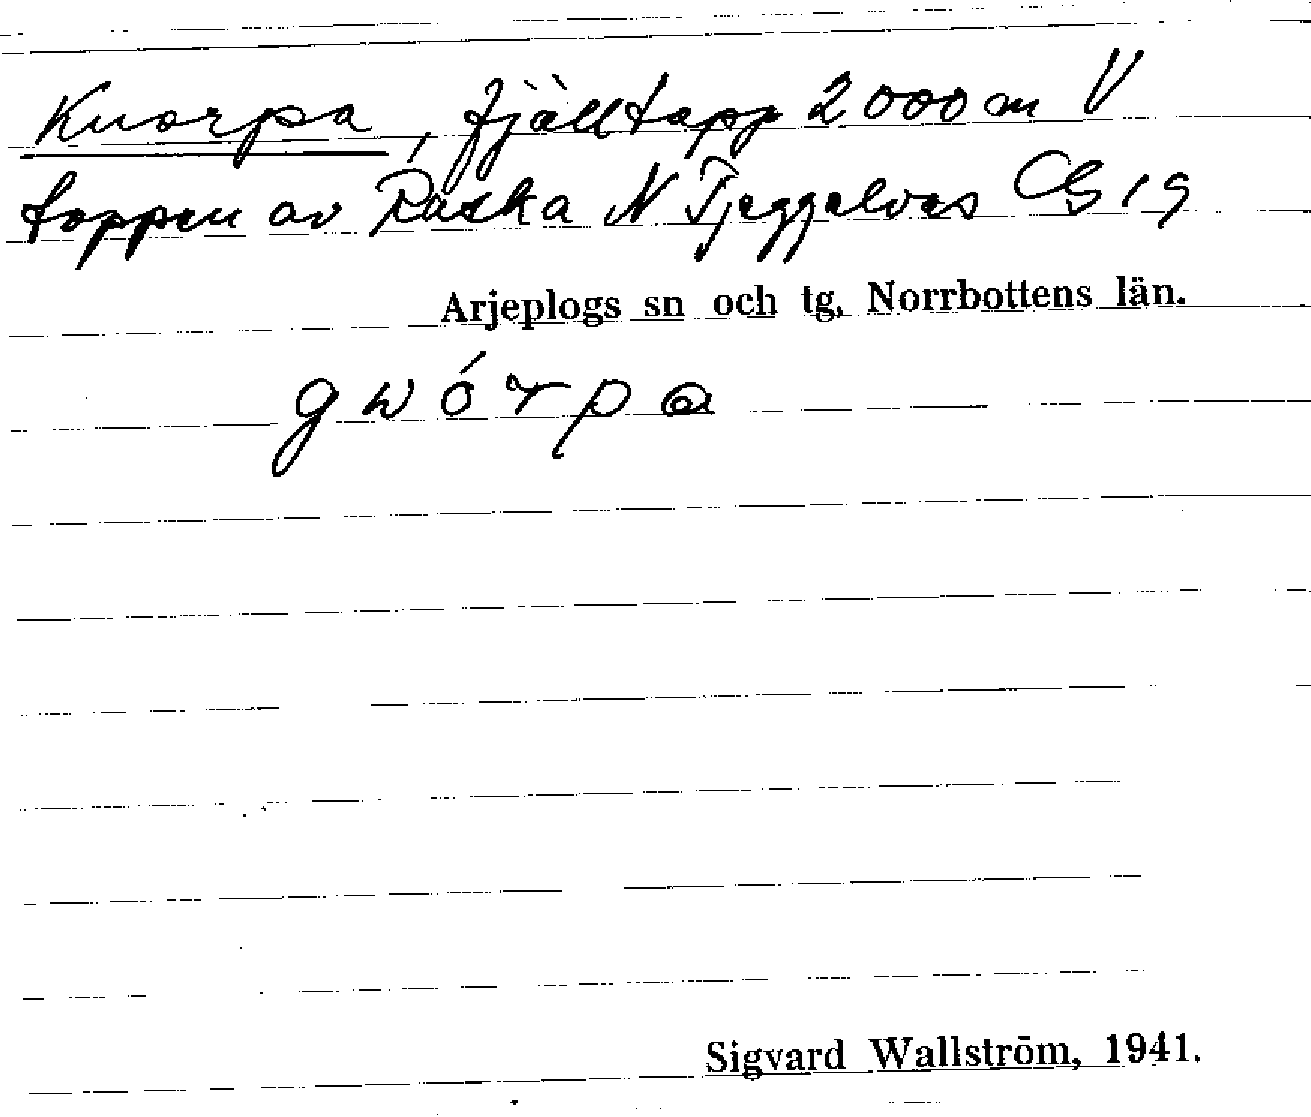 Kuorpa, fjälltopp 2000 m V
toppen av Raska N Tjeggelvas CG 19
Arjeplogs sn och tg, Norrbottens län.
gwórpa
Sigvard Wallström, 1941.